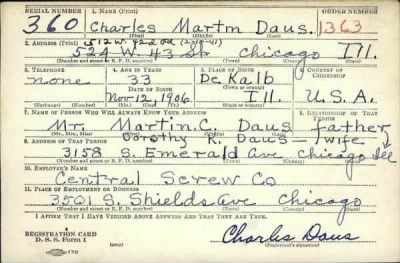 SERIAL NUMBER 1. NAME (Print) ORDER NUMBER
360 Charles Martin Daus. 1363
(First) (Middle) (Last)
2. ADDRESS (Print) 512 W. 42nd
524 W. 43 St. Chicago Ill.
(Number and street or R. F. D. number) (Town) (County) (State)
3. TELEPHONE 4. AGE IN YEARS 5. PLACE OF BIRTH 6. COUNTRY OF CITIZENSHIP
none 33 De Kalb
DATE OF BIRTH (Town or county)
Nov 12 1906. Ill. U.S.A.
(Mo.) (Day) (Yr.) (State or country)
7. NAME OF PERSON WHO WILL ALWAYS KNOW YOUR ADDRESS 8. RELATIONSHIP OF THAT PERSON
Mr. Martin C. Daus father
(Mr., Mrs., Miss) (First) (Middle) (Last)
Dorothy R. Daus - wife
9. ADDRESS OF THAT PERSON
3158 S. Emerald Ave Chicago Ill
(Number and street or R. F. D. number) (Town) (County) (State)
10. EMPLOYER'S NAME
Central Screw Co
11. PLACE OF EMPLOYMENT OR BUSINESS
3501 S. Shields Ave Chicago
(Number and street or R. F. D. number) (Town) (County) (State)
I AFFIRM THAT I HAVE VERIFIED ABOVE ANSWERS AND THAT THEY ARE TRUE.
REGISTRATION CARD
D. S. S. Form 1
Charles Daus
(Registrant's signature)